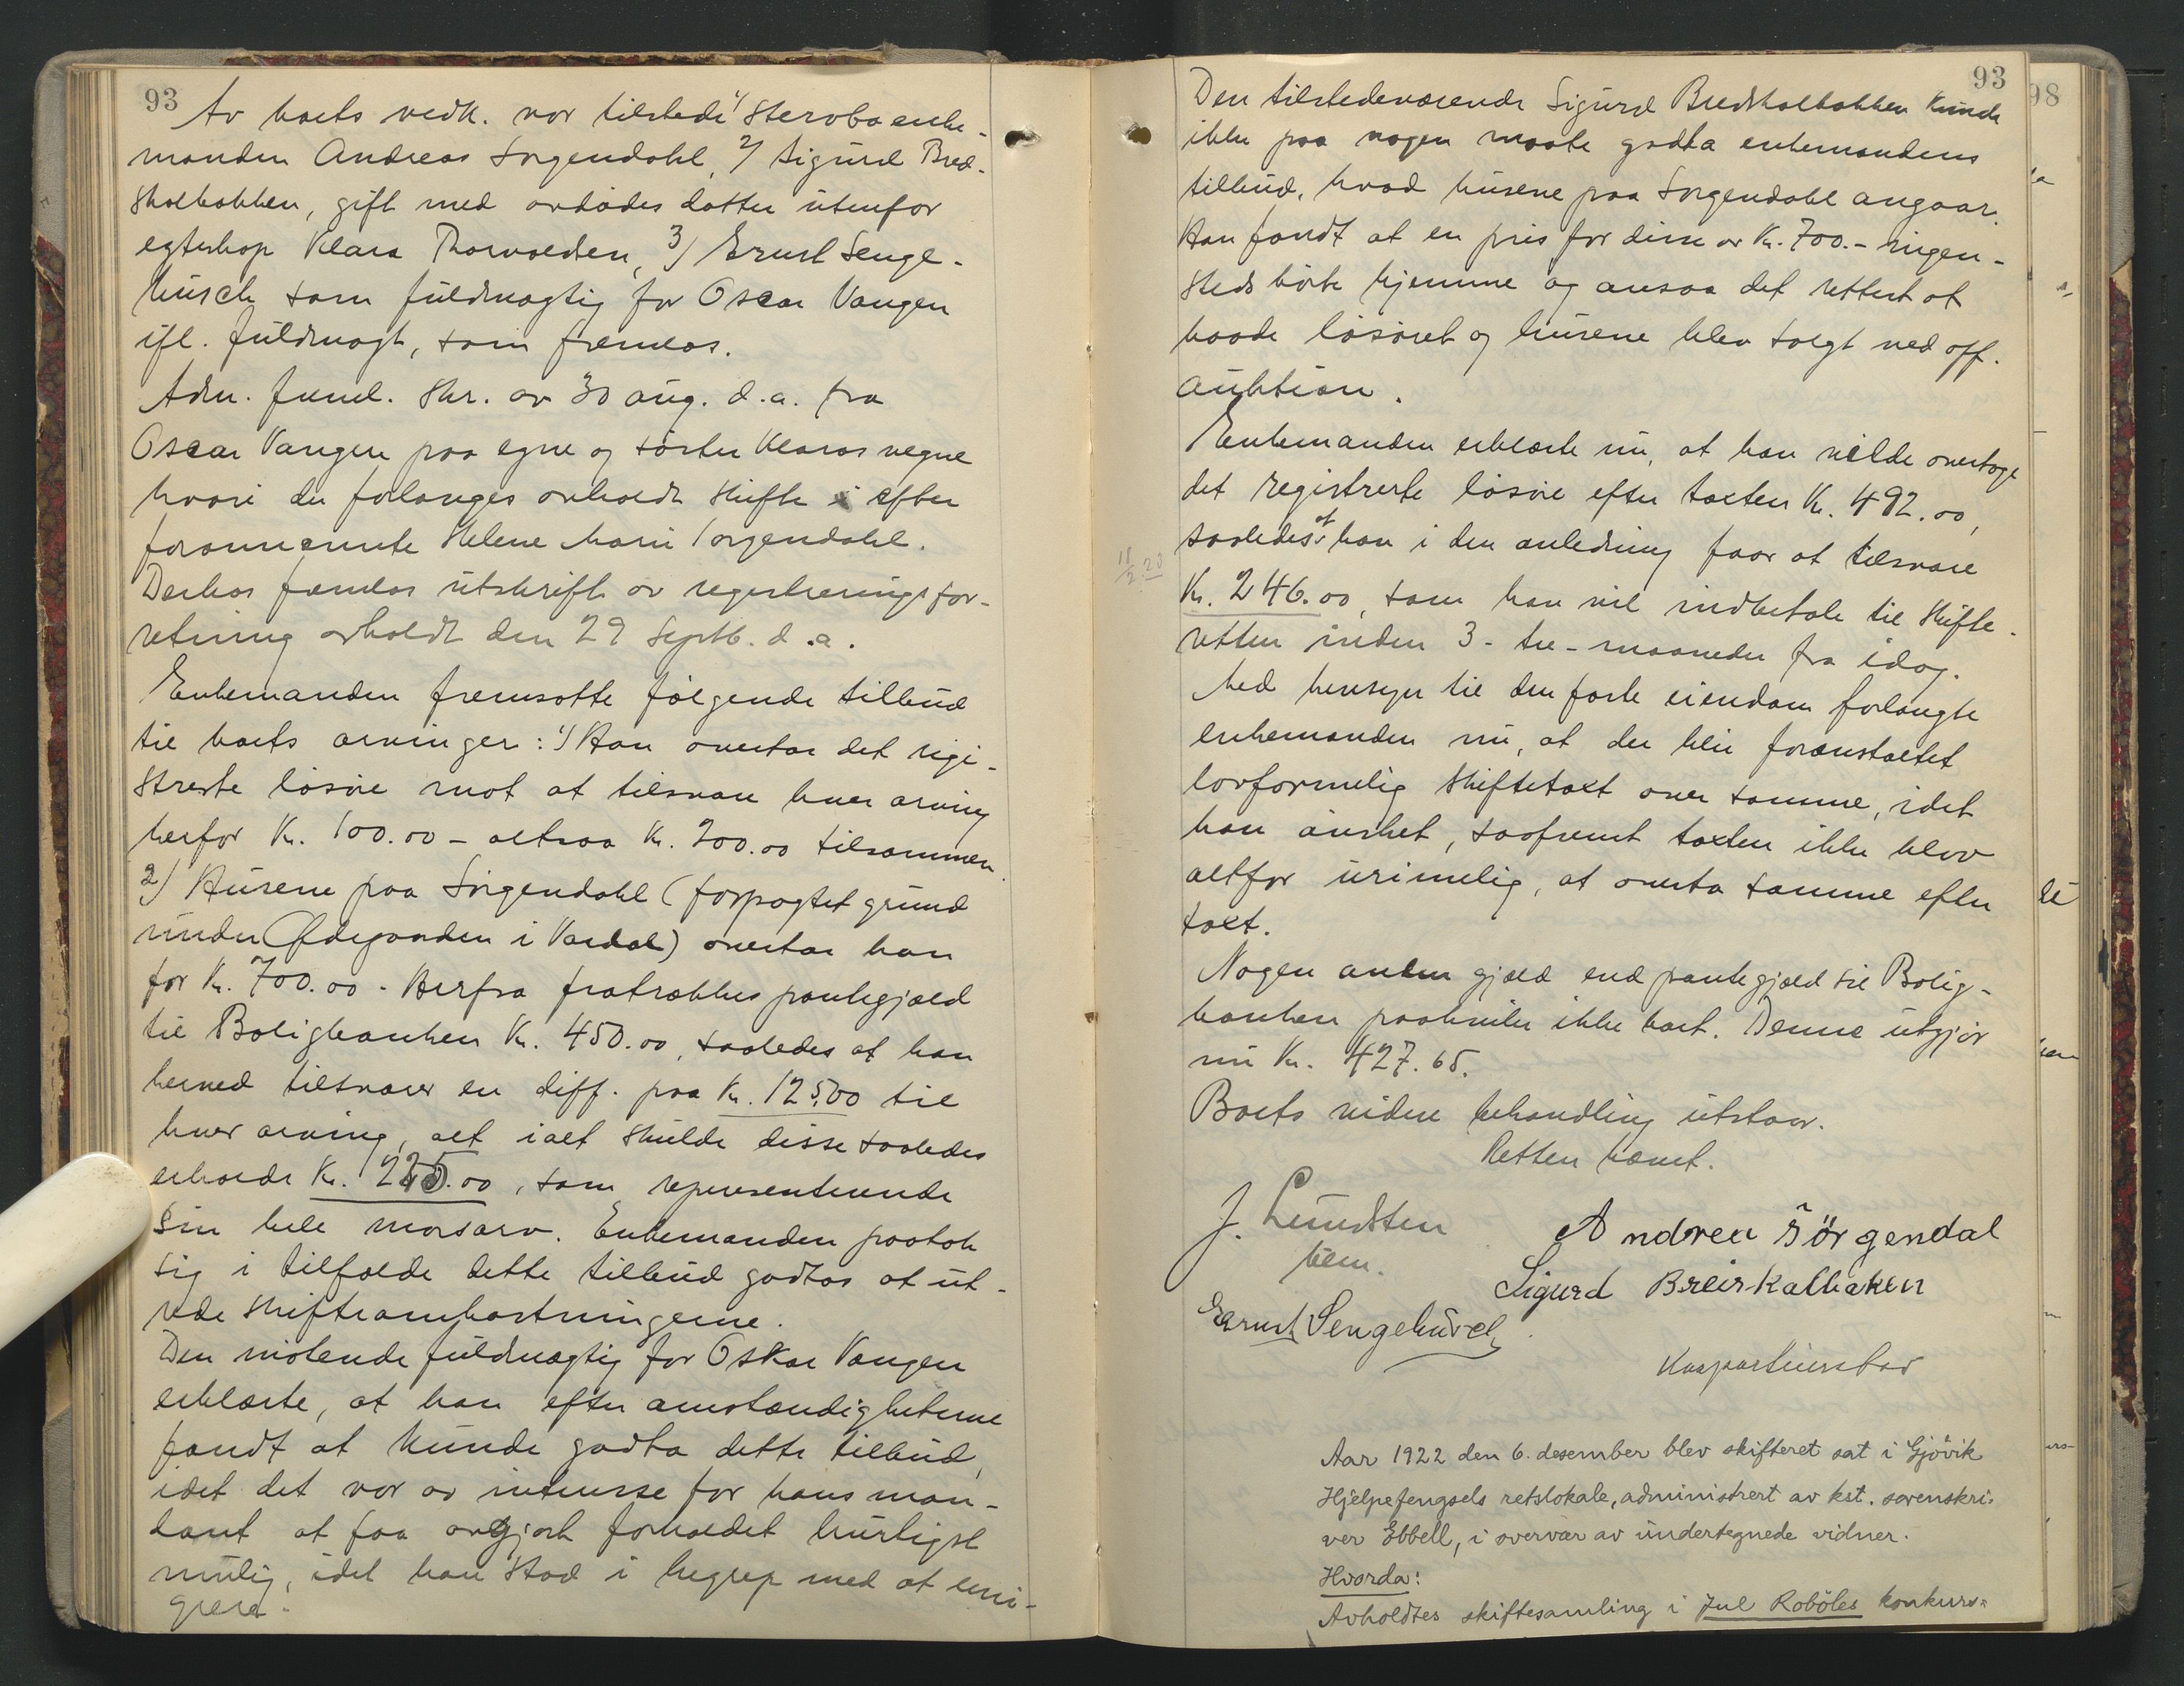 93
Av boets vedk. var tilstede 1/ Stervboenke-
manden Andreas Sørgendahl, 2/ Sigurd Bred-
skalbakken, gift med avdødes datter utenfor
egteskap Klara Thorvaldsen, 3/ Ernst Senge-
busch som fuldmægtig for Oscar Vangen
ifl. fuldmagt, som fremlas.
Adm. freml. skr. av 30 aug. d.a. fra
Oscar Vangen paa egne og søster Klaras vegne
hvori der forlanges avholdt skifte i efter
forannævnte Helene Marie Sørgendahl.
Derhos fremlas utskrift av registreringsfor-
retning avholdt den 29 Septb. d.a.
Enkemanden fremsatte følgende tilbud
til boets arvinger: 1/ Han overtar det regi-
strerte løsøre mot at tilsvare hver arving
herfor Kr. 100.00 - altsaa Kr. 200.00 tilsammen.
2/ Husene paa Sørgendahl (forpagtet grund
under Ødegaarden i Vardal) overtar han
for Kr. 700.00 - Herfra fratrækkes pantegjæld
til Boligbanken Kr. 450.00, saaledes at han
herved tilsvarer en diff. paa Kr. 125.00 til
hver arving, alt ialt skulde disse saaledes
erholde Kr. 225.00, som representerende
sin hele morsarv. Enkemanden paatok
sig i tilfælde dette tilbud godtas at ut-
rede skifteomkostningerne.
Den møtende fuldmægtig for Oskar Vangen
erklærte, at han efter omstændigheterne
fandt at kunde godta dette tilbud,
idet det var av interesse for hans man-
dant at faa avgjort forholdet hurtigst
mulig, idet han stod i begrep med at emi-
grere.
93
98
Den tilstedeværende Sigurd Bredskalbakken kunde
ikke paa nogen maate godta enkemandens
tilbud, hvad husene paa Sørgendahl angaar.
Han fandt at en pris for disse av Kr. 700.- ingen-
steds hørte hjemme og ansaa det rettest at
baade løsøret og husene blev solgt ved off.
auktion.
Enkemanden erklærte nu, at han vilde overtage
det registrerte løsøre efter taxten Kr. 492.00,
saaledes at han i den anledning faar at tilsvare
Kr. 246.00, som han vil indbetale til skifte-
retten inden 3 - tre - maaneder fra idag.
Med hensyn til den faste eiendom forlangte
enkemanden nu, at der blir foranstaltet
lovformelig skiftetaxt over samme, idet
han ønsket, saafremt taxten ikke blev
altfor urimelig, at overta samme efter
taxt.
Nogen anden gjæld end pantegjæld til Bolig-
banken paahviler ikke boet. Denne utgjør
nu Kr. 427.65.
Boets videre behandling utstaar.
Retten hævet.
J. Lundsten
Andrea Sörgendal
Sigurd Breiskalbaken
Ernst Sengebusch
Aar 1922 den 6. desember blev skifteret sat i Gjövik
Hjelpefengsels retslokale, administrert av kst. sorenskri-
ver Ebbell, i overvær av undertegnede vidner.
Hvorda:
Avholdtes skiftesamling i Jul Roböles konkurs=